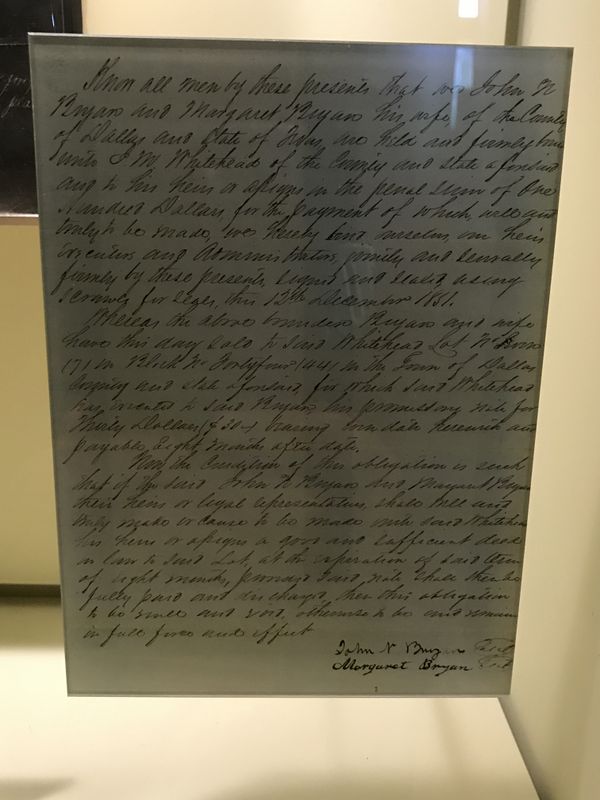 Know all men by these presents that we John N
Bryan and Margaret Bryan his wife, of the County
of Dallas and State of Texas, are held and firmly
unto Whitehead of the County and state aforesaid
and to his heirs or assigns in the penal sum of One
Hundred Dollars, for the payment of which, well and
truly to be made, we hereby bind ourselves, our heirs
executors and Administrators, jointly and severally
firmly by these presents, signed and sealed, using
scrawls for seals, this 13th December 1851.
Whereas the above bounden Bryan and wife
have this day sold to said Whitehead Lot No
(7) in Block No Fortyfour (44) in the Town of Dallas
County and state aforesaid, for which said Whitehead
has executed to said Bryan his promissory note for
Thirty Dollars ($30-) bearing even date herewith and
payable Eight months after date.
Now the Condition of this obligation is such
that if the said John N Bryan and Margaret Bryan
their heirs or legal representatives, shall well and
truly make or cause to be made unto said Whitehead
his heirs or assigns a good and sufficient deed
in law to said Lot, at the expiration of said term
of eight months, provided said note shall then be
fully paid and discharged, then this obligation
to be null and void, otherwise to be and remain
in full force and effect
John N Bryan Seal
Margaret Bryan Seal